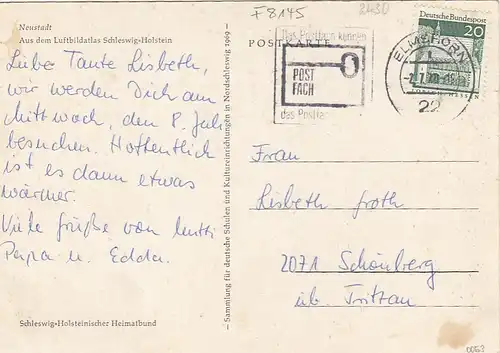 Neustadt
Aus dem Luftbildatlas Schleswig-Holstein
Liebe Tante Lisbeth,
wir werden Dich am
Mittwoch, den 8. Juli
besuchen. Hoffentlich
ist es dann etwas
wärmer.
Viele Grüße von Mutti
Papa u. Edda.
Schleswig-Holsteinischer Heimatbund
— Sammlung für deutsche Schulen und Kultureinrichtungen in Nordschleswig 1969 —
F8145
2430
POSTKARTE
Das Postfach können
POST
FACH
das Postfach
ELMSHORN
22
Deutsche Bundespost
20
Frau
Lisbeth Groth
2071 Schönberg
üb. Trittau
0053